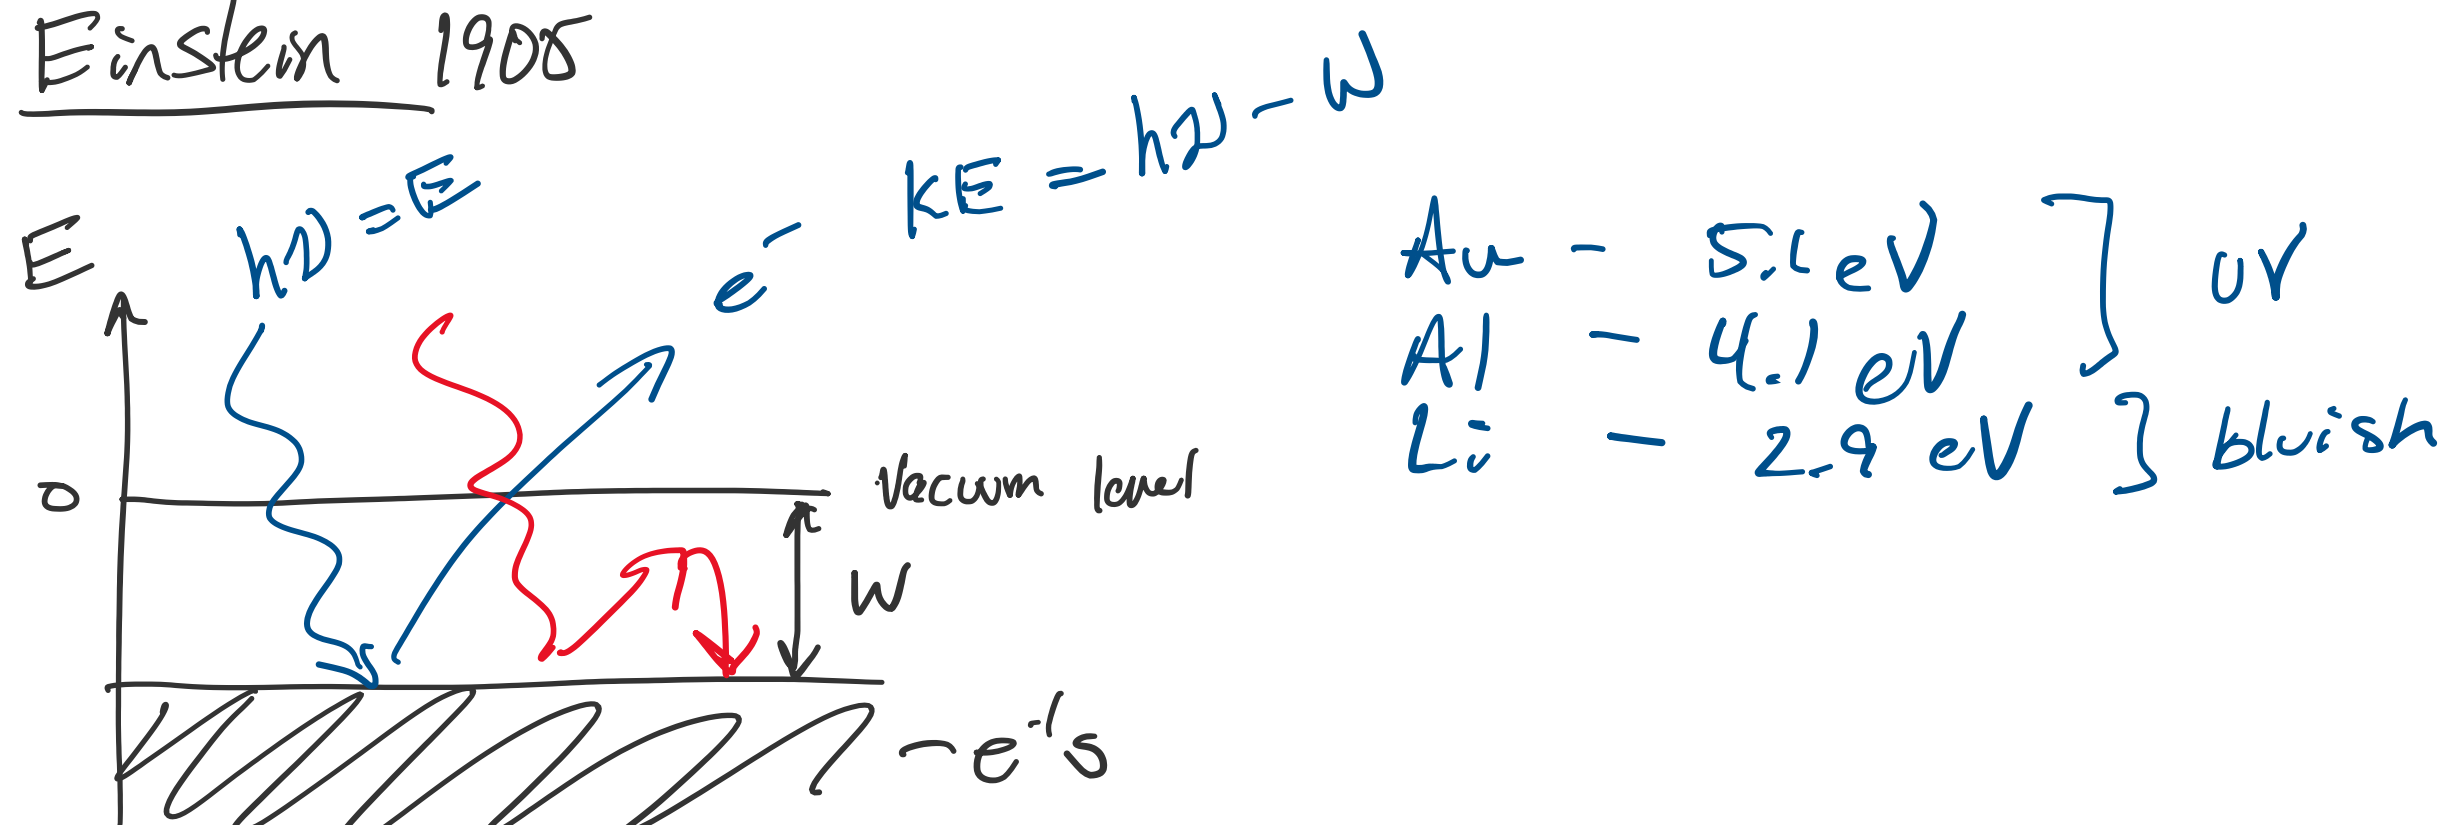 Einstein 1905
hν = E
e⁻ KE = hν - W
E
Au - 5.1 eV ] UV
Al - 4.1 eV
Li - 2.9 eV ] bluish
0
Vacuum level
W
- e⁻'s